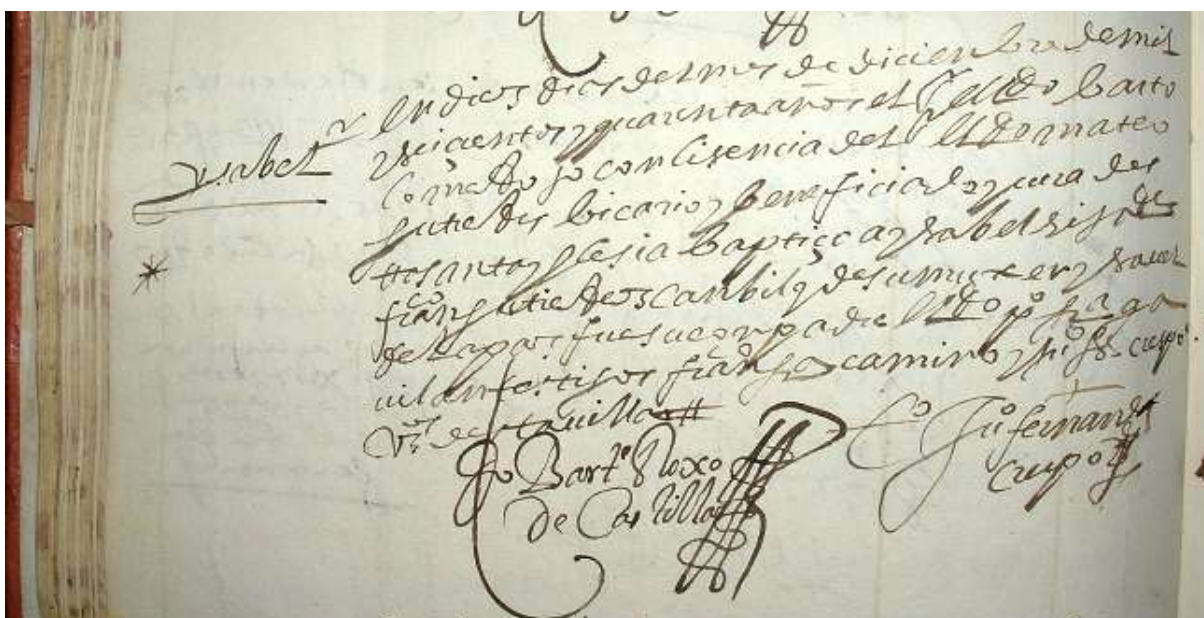 ysabel
en dieç dias del mes de diciembre de mil
y seicentos y quarenta años el Sr lldo barto
lome Roxo con lisensia del lldo mateo
gutierrez bicario y beneficiado y cura des
ta santa yglesia baptiço a ysabel hija de
franco gutierrez escanbil y de su muxer ysauel
de fue su conpadre lldo po
testigos franco camino y juo fs crespo
vos de esta villa
Bartme Roxo
de Castilla
Juo fernandes
crespo